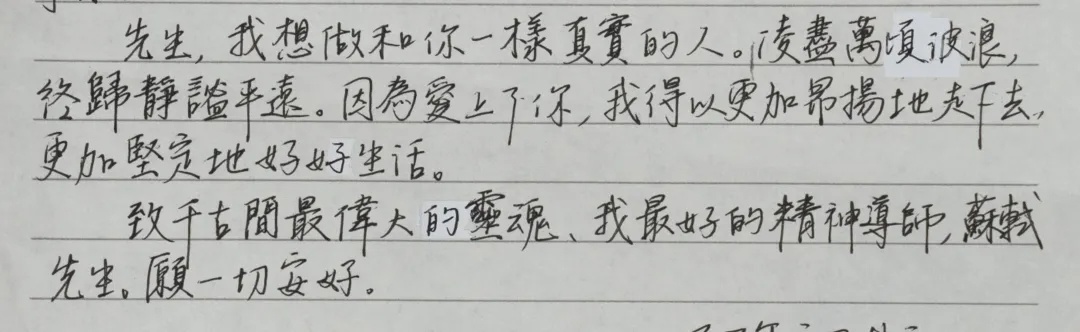 先生，我想做和你一樣真實的人。凌盡萬頃波浪，
終歸靜謐平遠。因為愛上了你，我得以更加昂揚地走下去，
更加堅定地好好生活。
致千古間最偉大的靈魂、我最好的精神導師，蘇軾
先生。願一切安好。